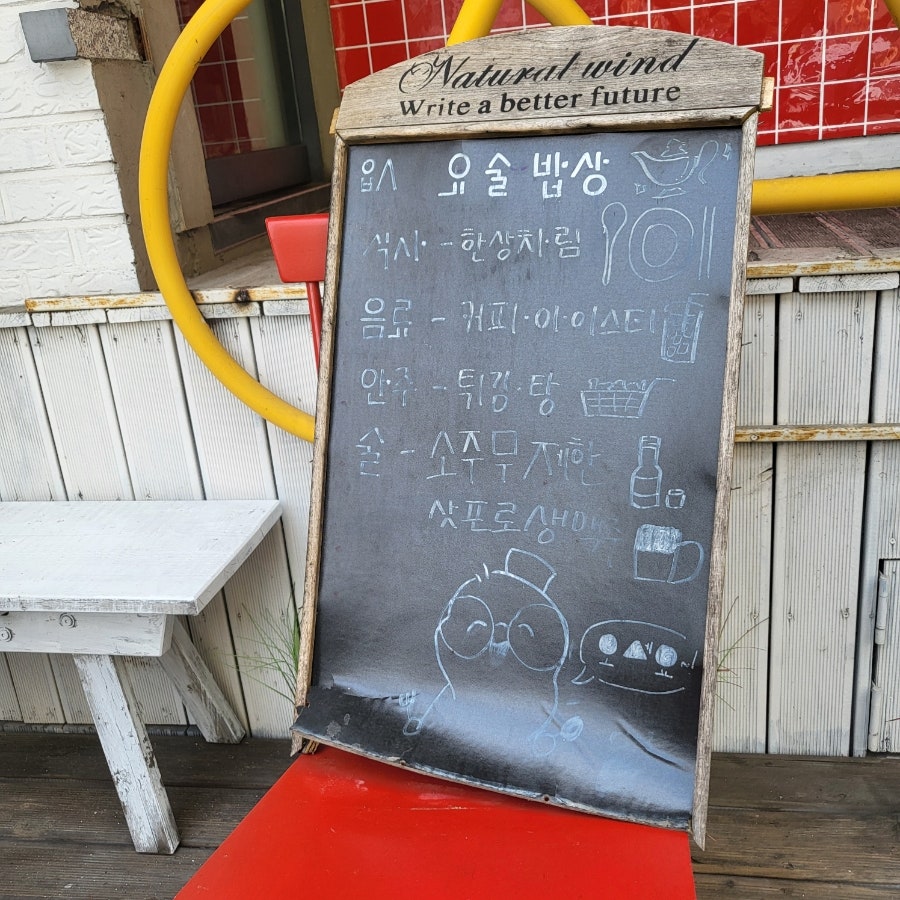 Natural wind
Write a better future
요술 밥상
식사 - 한상차림
음료 - 커피·아이스티
안주 - 튀김·탕
술 - 소주무제한
삿포로생맥주
오세요~!